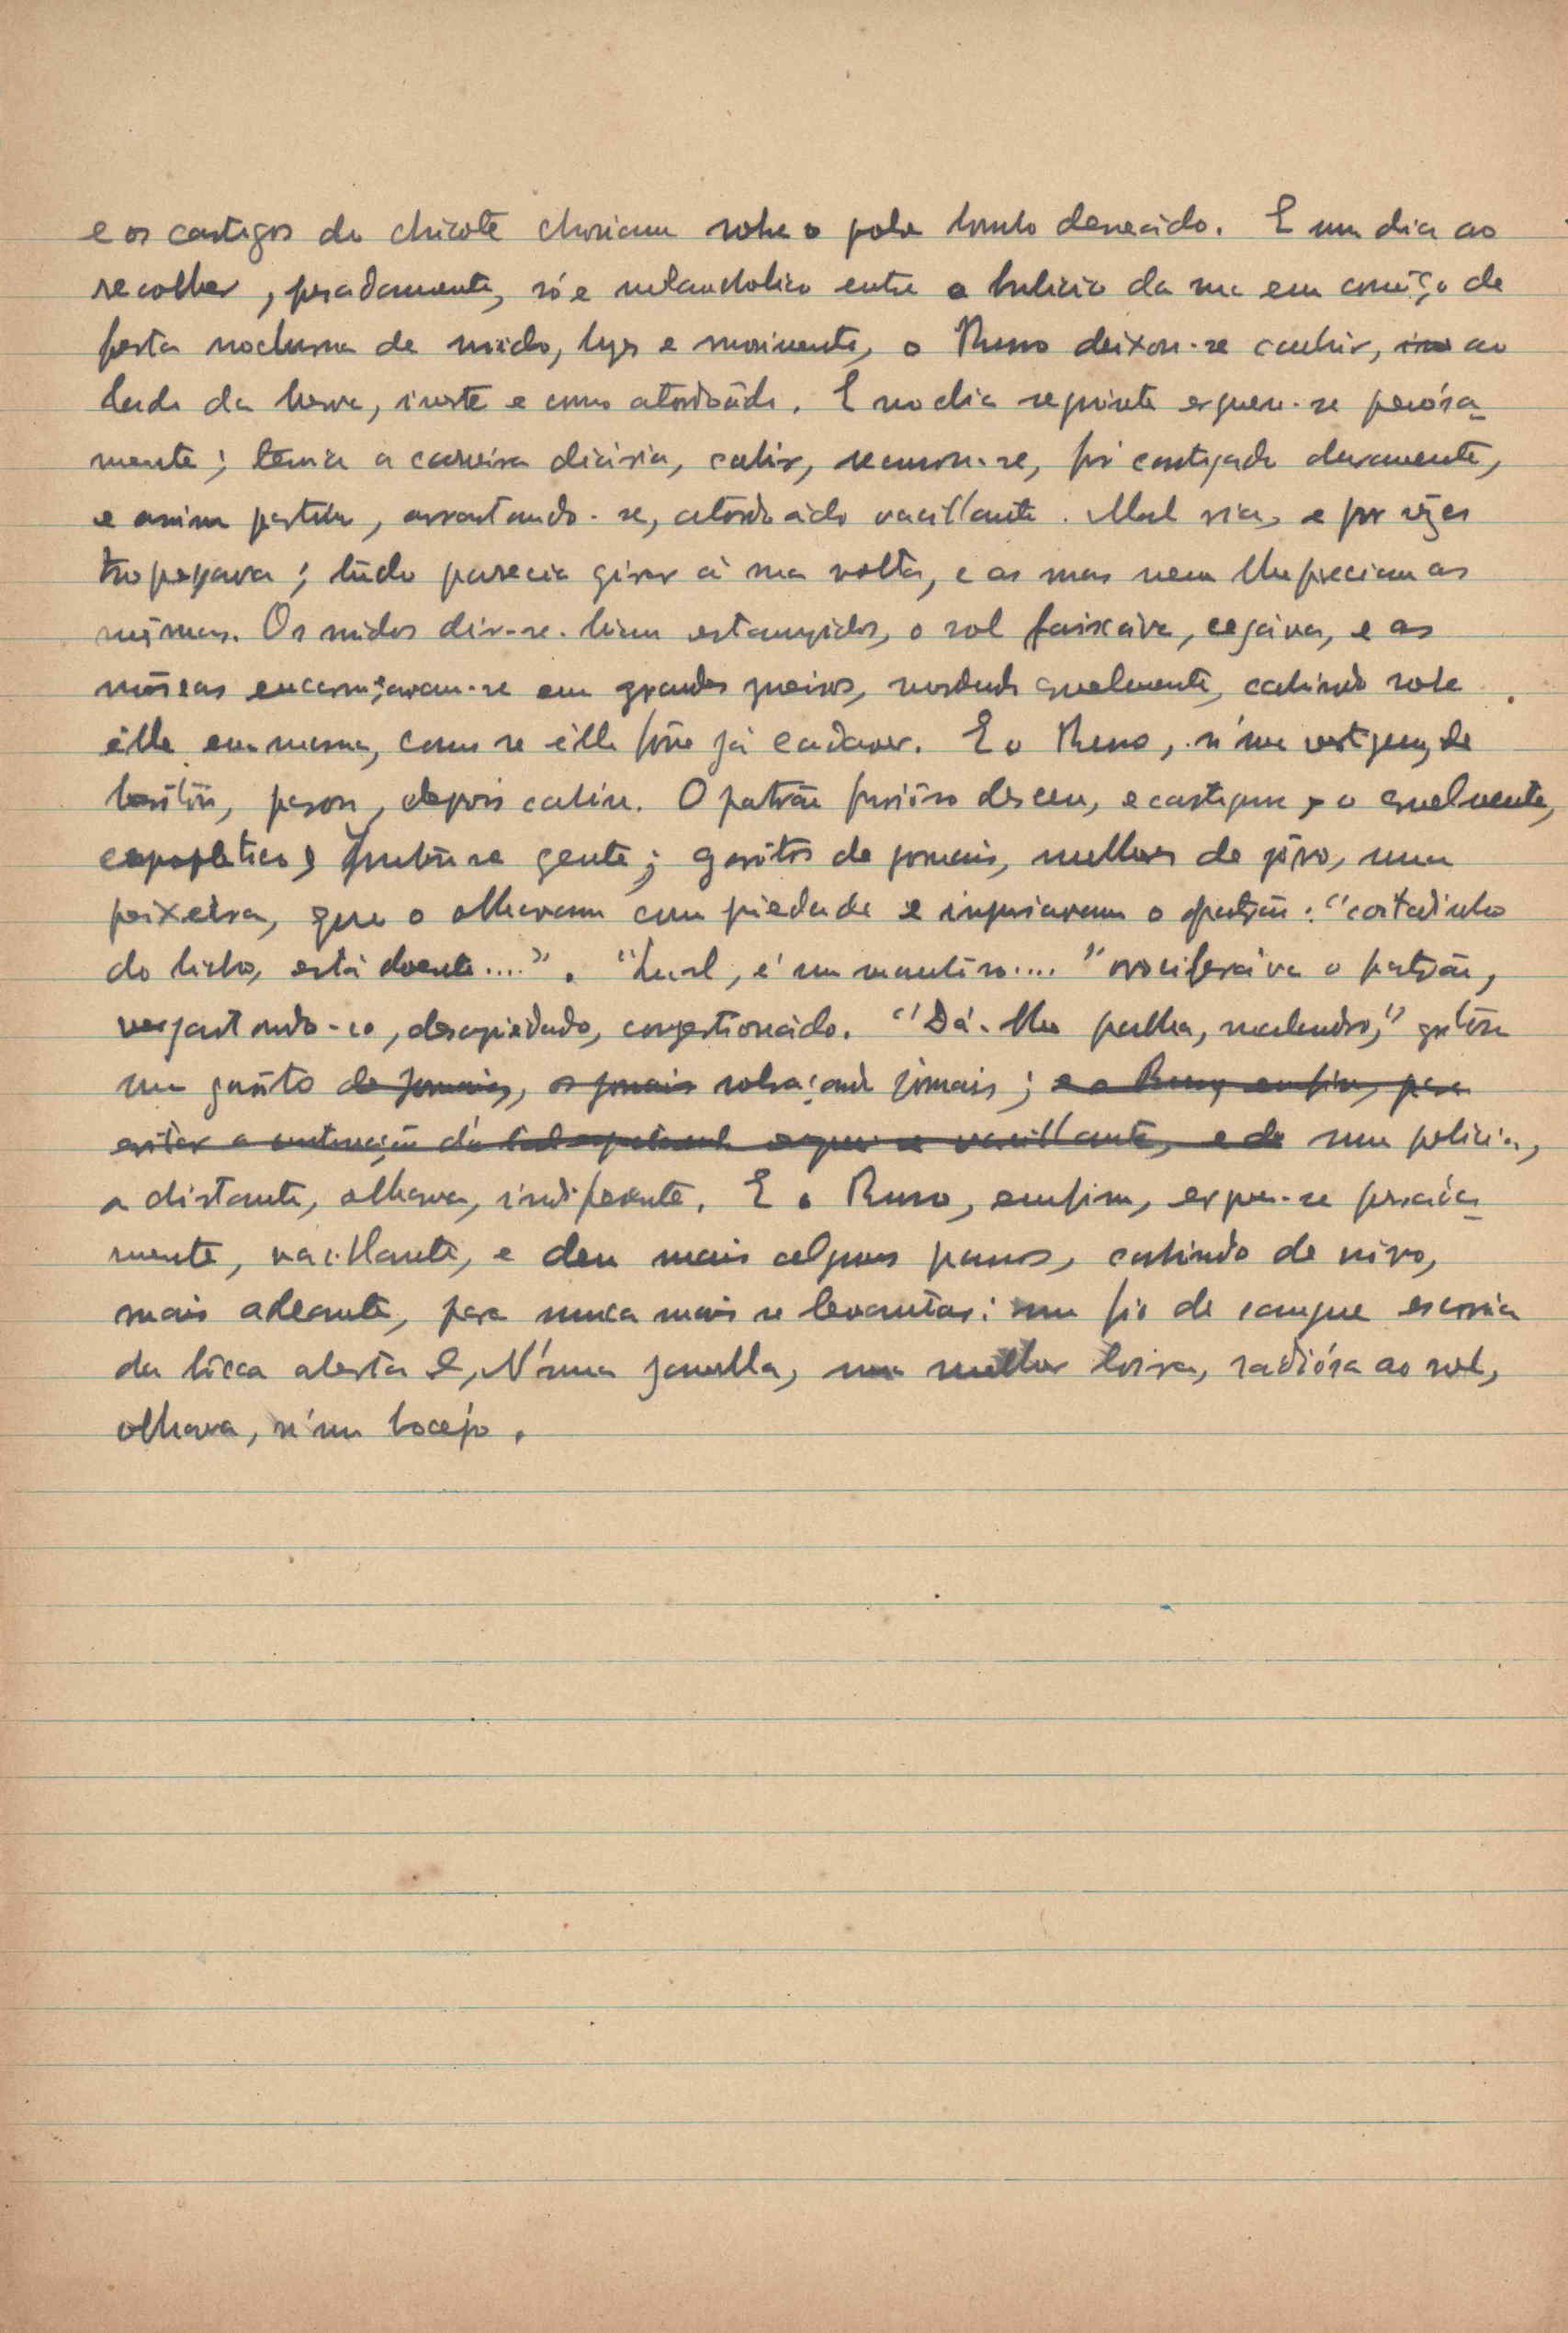 e os castigos do chicote choviam sobre o pobre bruto desnecido. E um dia ao
recolher, pesadamente, só e melancholico entre o bulicio da rua em comêço de
festa nocturna de ruido, luzes e movimento, o Russo deixou-se cahir, ao
lado da herva, inerte e como atordoádo. E no dia seguinte ergueu-se penósa-
mente; temia a carreira diária, cahir, recusou-se, foi castigado duramente,
e assim partiu, arrastando-se, atordoádo vacillante. Mal via, e por vêzes
tropeçava; tudo parecia girar á sua volta, e as ruas nem lhe pareciam as
mêsmas. Os ruidos dir-se-hiam estampidos, o sol faiscáva, cegáva, e as
môscas encarniçavam-se em grandes, mordendo cruelmente, cahindo sobre
êlle em massa, como se êlle fôsse já cadaver. E o Russo, n'uma vertigem, de
hesitou, parou, depois cahiu. O patrão furiôso desceu, e castigou-o cruelmente,
apopletico; juntou-se gente; garôtos de jornais, mulheres de pôvo, uma
peixeira, que o olhavam com piedade e injuriavam o patrão: "coitadinho
do bicho, está doente....". "Qual, é um manhôso...." vociferáva o patrão,
vergastando-o, desapiedado, congestionádo. "Dá-lhe palha, malandro," gritou
um garôto de jornais, os jornais sobraçando jornais; e o Russo, emfim, para
evitar a continuação da ergueu-se vacillante, e de um policia,
a distante, olhava, indiferente. E o Russo, emfim, ergueu-se penósa-
mente, vacillante, e deu mais alguns passos, cahindo de nôvo,
mais adeante, para nunca mais se levantar: um fio de sangue escorria
da bôcca aberta E, N'uma janella, uma mulher loira, radiósa ao sol,
olhava, n'um bocejo.